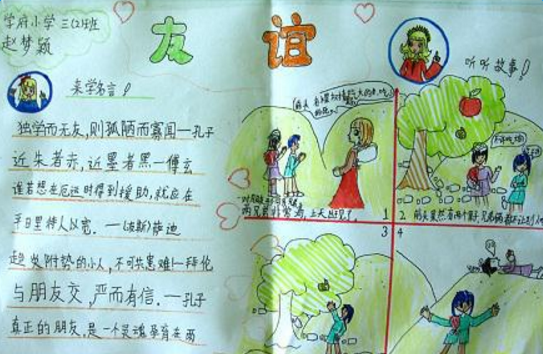 学府小学 三(2)班
赵梦颖
友谊
来学名言!
听听故事!
独学而无友,则孤陋而寡闻—孔子
近朱者赤,近墨者黑—傅玄
谁若想在厄运时得到援助,就应在
平日里待人以宽.——(波斯)萨迪
趋炎附势的小人,不可共患难—拜伦
与朋友交,严而有信.—孔子
真正的朋友,是一个灵魂孕育在两
1
2
3
4